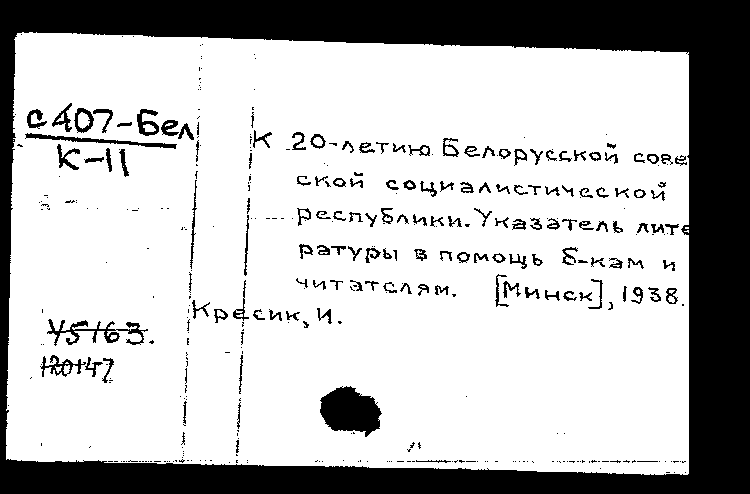 с407-Бел
К-11
К 20-летию Белорусской сове
ской социалистической
республики. Указатель лите
ратуры в помощь б-кам и
читателям. [Минск], 1938.
Кресик, И.
У5163.
120147